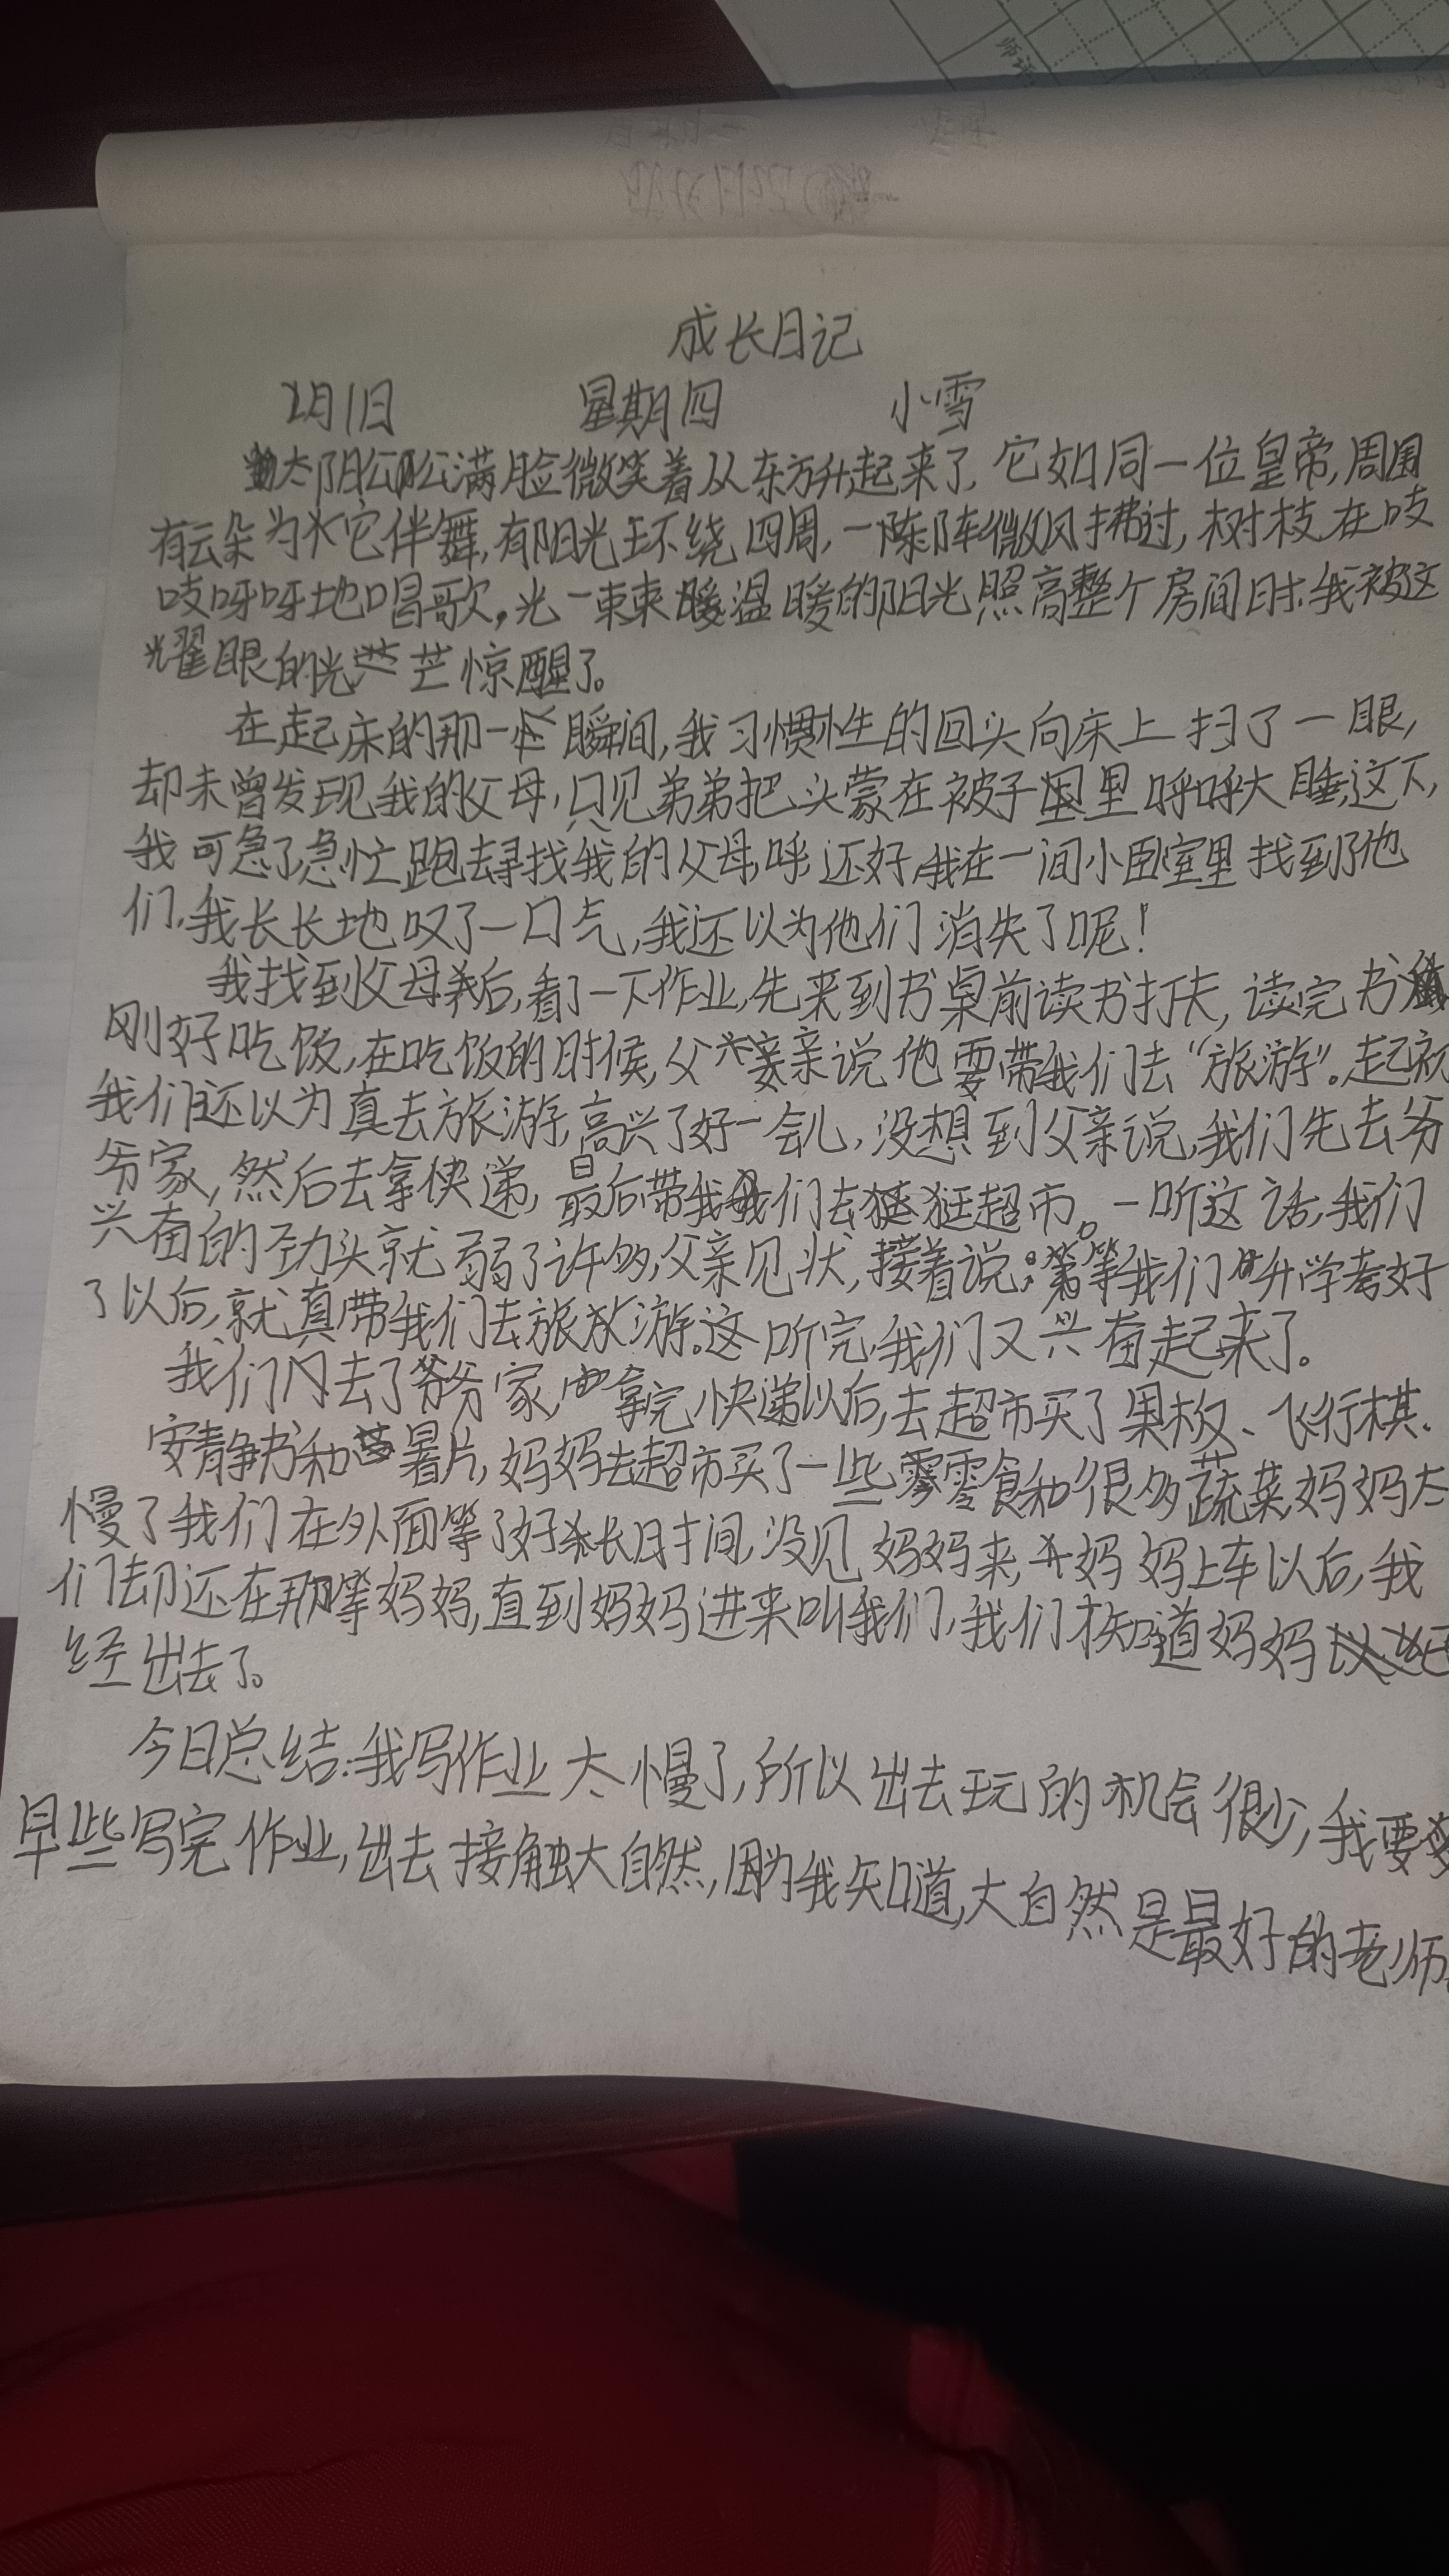 成长日记
2月1日 星期四 小雪
太阳公公满脸微笑着从东方升起来了,它如同一位皇帝,周围
有云朵为它伴舞,有阳光环绕四周,一阵阵微风拂过,树枝在吱
吱呀呀地唱歌,光一束束温暖的阳光照高整个房间时,我被这
耀眼的光芒惊醒了。
在起床的那一瞬间,我习惯性的回头向床上扫了一眼,
却未曾发现我的父母,只见弟弟把头蒙在被子里呼呼大睡,这下,
我可急了急忙跑去寻找我的父母,呼,还好,我在一间小卧室里找到了他
们,我长长地叹了一口气,我还以为他们消失了呢!
我找到父母后,看了一下作业,先来到书桌前读书打夫,读完书
刚好吃饭,在吃饭的时候,父亲说他要带我们去“旅游”。起初
我们还以为真去旅游,高兴了好一会儿,没想到父亲说,我们先去爷
爷家,然后去拿快递,最后带我们去逛超市。一听这话,我们
兴奋的劲头就弱了许多,父亲见状,接着说:等我们升学考好
了以后,就真带我们去旅游。这听完,我们又兴奋起来了。
我们去了爷爷家,拿完快递以后,去超市买了果板、飞行棋、
安静书和暑片,妈妈去超市买了一些零食和很多蔬菜,妈妈太
慢了我们在外面等了好长时间,没见妈妈来,妈妈上车以后,我
们却还在那等妈妈,直到妈妈进来叫我们,我们才知道妈妈已
经出去了。
今日总结:我写作业太慢了,所以出去玩的机会很少,我要
早些写完作业,出去接触大自然,因为我知道,大自然是最好的老师。